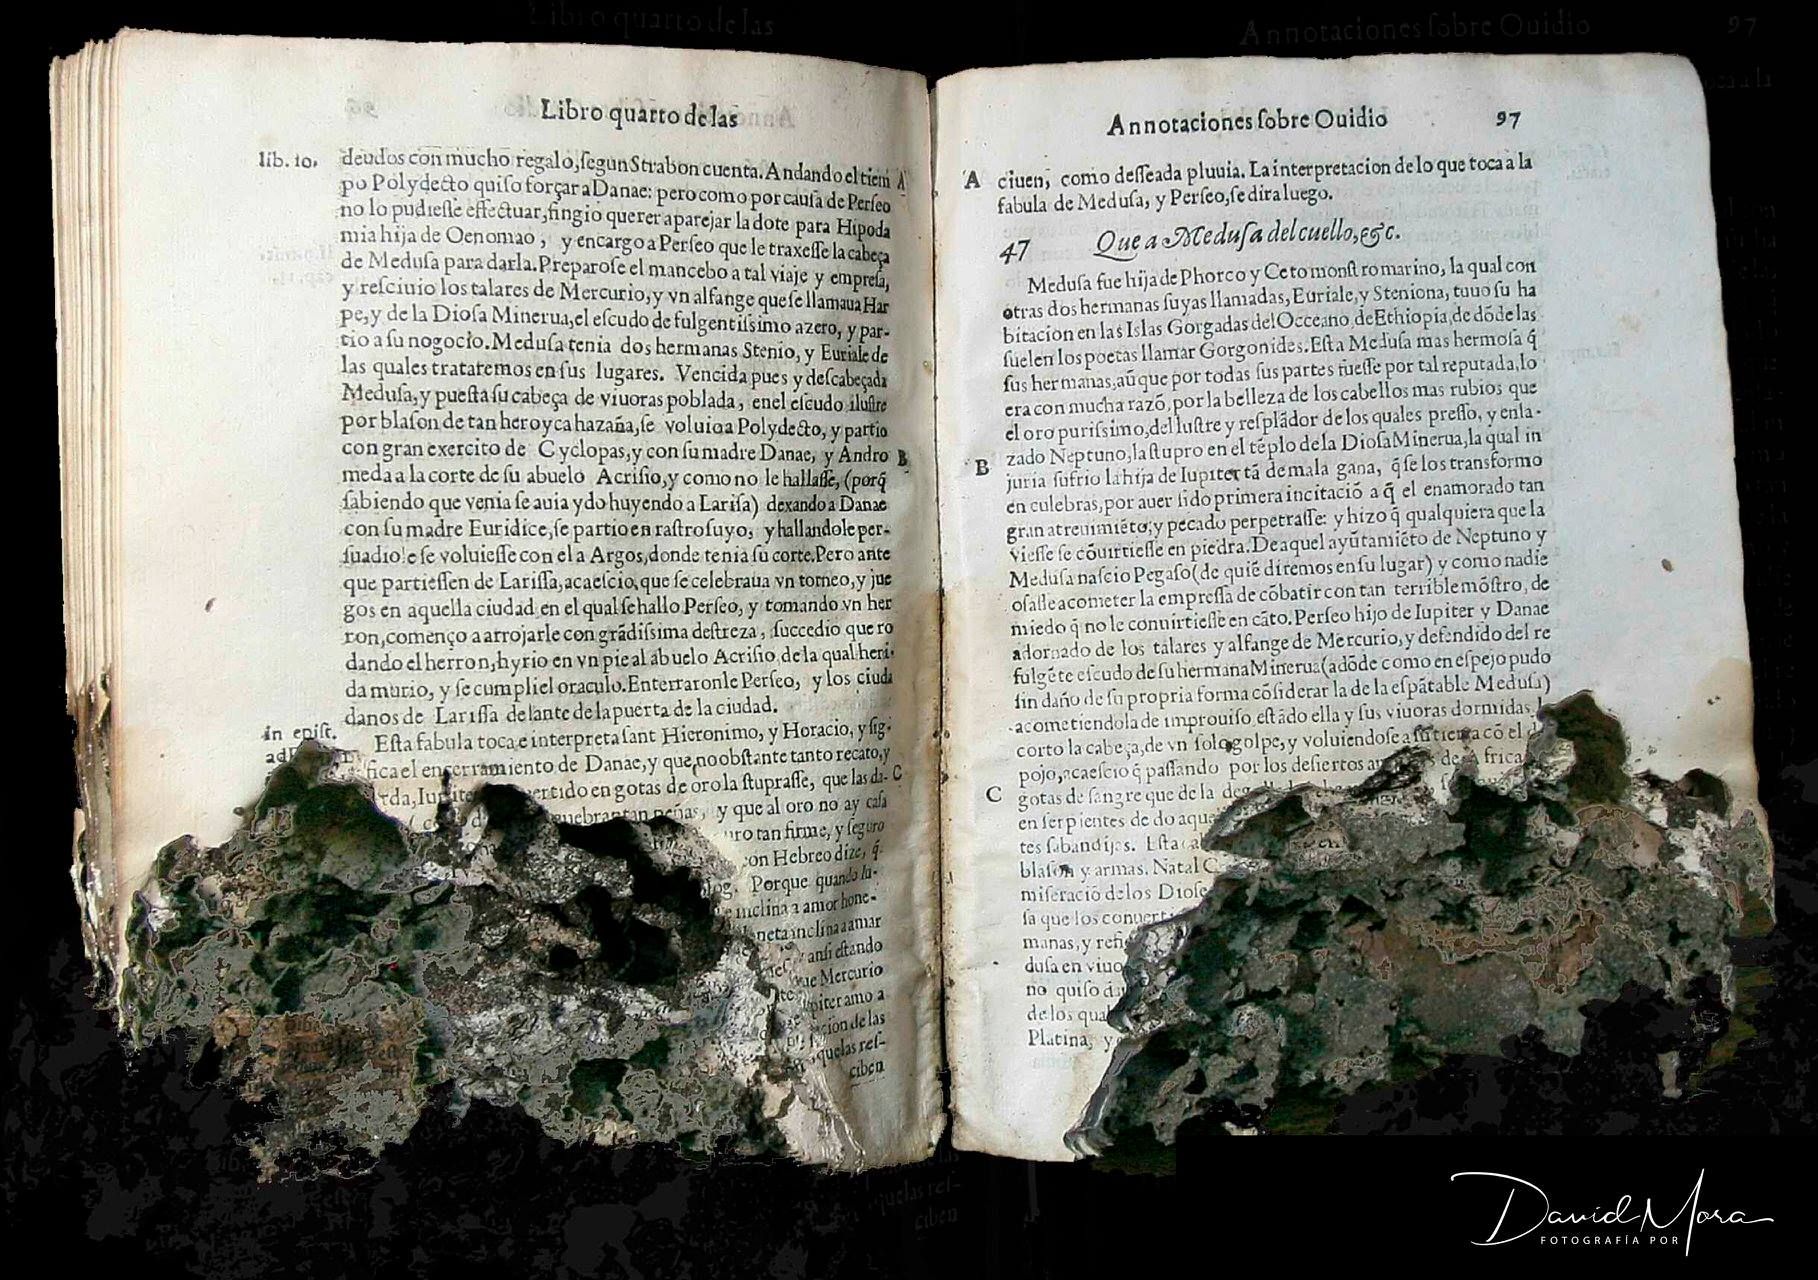 Libro quarto de las
lib. 10. deudos con mucho regalo, ſegun Strabon cuenta. Andando el tiem A
po Polydecto quiſo forçar a Danae: pero como por cauſa de Perſeo
no lo pudieſſe effectuar, fingio querer aparejar la dote para Hipoda
mia hija de Oenomao, y encargo a Perſeo que le traxeſſe la cabeça
de Meduſa para darla. Preparoſe el mancebo a tal viaje y empreſa,
y reſciuio los talares de Mercurio, y vn alfange que ſe llamaua Har
pe, y de la Dioſa Minerua, el eſcudo de fulgentiſsimo azero, y par-
tio a ſu nogocio. Meduſa tenia dos hermanas Stenio, y Euriale de
las quales trataremos en ſus lugares. Vencida pues y deſcabeçada
Meduſa, y pueſta ſu cabeça de viuoras poblada, enel eſcudo iluſtre
por blaſon de tan heroyca hazaña, ſe voluio a Polydecto, y partio
con gran exercito de Cyclopas, y con ſu madre Danae, y Andro B
meda a la corte de ſu abuelo Acriſio, y como no le hallaſſe, (porq̃
ſabiendo que venia ſe auia ydo huyendo a Lariſa) dexando a Danae
con ſu madre Euridice, ſe partio en raſtro ſuyo, y hallandole per-
ſuadiole ſe voluieſſe con el a Argos, donde tenia ſu corte. Pero ante
que partieſſen de Lariſſa, acaeſcio, que ſe celebraua vn torneo, y jue
gos en aquella ciudad en el qual ſe hallo Perſeo, y tomando vn her
ron, començo a arrojarle con grãdiſsima deſtreza, ſuccedio que ro
dando el herron, hyrio en vn pie al abuelo Acriſio de la qual heri-
da murio, y ſe cumpliel oraculo. Enterraronle Perſeo, y los ciuda
danos de Lariſſa delante de la puerta de la ciudad.
in epiſt. Eſta fabula toca e interpreta ſant Hieronimo, y Horacio, y ſig-
fica el encerramiento de Danae, y que no obſtante tanto recato, y
ertido en gotas de oro la ſtupraſſe, que las da- C
quebrantan peñas, y que al oro no ay caſa
uro tan firme, y ſeguro
con Hebreo dize, q̃
log. Porque quando Iu-
inclina a amor hone-
neta inclina a amar
anſi eſtando
ue Mercurio
piter amo a
cion de las
quelas reſ-
ciben
Annotaciones ſobre Ouidio 97
A ciuen, como deſſeada pluuia. La interpretacion de lo que toca a la
fabula de Meduſa, y Perſeo, ſe dira luego.
47 Que a Meduſa del cuello, &c.
Meduſa fue hija de Phorco y Ceto monſtro marino, la qual con
otras dos hermanas ſuyas llamadas, Euriale, y Steniona, tuuo ſu ha
bitacion en las Islas Gorgadas del Occeano de Ethiopia, de dõde las
ſuelen los poetas llamar Gorgonides. Eſta Meduſa mas hermoſa q̃
ſus hermanas, aũque por todas ſus partes fueſſe por tal reputada, lo
era con mucha razõ, por la belleza de los cabellos mas rubios que
el oro puriſsimo, del luſtre y reſplãdor de los quales preſſo, y enla-
zado Neptuno, la ſtupro en el tẽplo de la Dioſa Minerua, la qual in
B juria ſufrio la hija de Iupiter tã de mala gana, q̃ ſe los transformo
en culebras, por auer ſido primera incitaciõ a q̃ el enamorado tan
gran atreuimiẽto, y pecado perpetraſſe: y hizo q̃ qualquiera que la
vieſſe ſe cõuirtieſſe en piedra. De aquel ayũtamiẽto de Neptuno y
Meduſa naſcio Pegaſo (de quiẽ diremos en ſu lugar) y como nadie
oſaſſe acometer la empreſſa de cõbatir con tan terrible mõſtro, de
miedo q̃ no le conuirtieſſe en cãto. Perſeo hijo de Iupiter y Danae
adornado de los talares y alfange de Mercurio, y defendido del re
fulgẽte eſcudo de ſu hermana Minerua (adõde como en eſpejo pudo
ſin daño de ſu propria forma cõſiderar la de la eſpãtable Meduſa)
acometiendola de improuiſo eſtãdo ella y ſus viuoras dormidas
corto la cabeça, de vn ſolo golpe, y voluiendoſe a ſu tierra cõ el
pojo, acaeſcio q̃ paſſando por los deſiertos de Africa
C gotas de ſangre que de la
en ſerpientes de do
tes ſabandijas. Eſta
blaſon y armas. Natal C
miſeraciõ de los Dioſe
ſa que los conuerti
manas, y refi
duſa en viuo
no quiſo
de los qua
Platina, y
David Mora
FOTOGRAFÍA POR